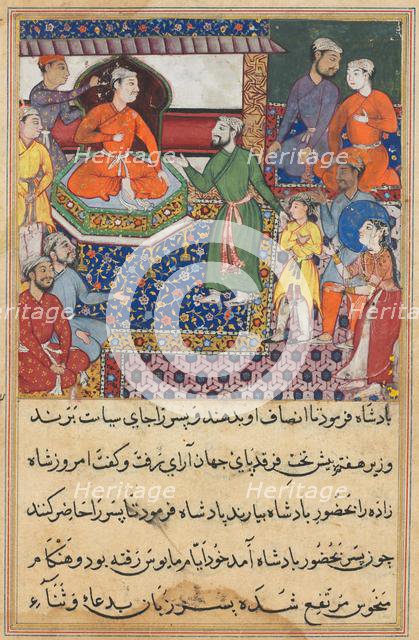 بادشاه فرمود تا انصاف او بدهند و پسر را جای سیاست برند
وزیر هفتم پیش تخت فرقد پای جهان آرای رفت و گفت امروز شاه
زاده را بحضور بادشاه بیارند بادشاه فرمود تا پسر را حاضر کنند
چون پسر بحضور بادشاه آمد خود ایام مایوس رفته بود و هنکام
منحوس مرتفع شده پسر زبان بدعا و ثنآء
Heritage
Heritage
Heritage
Heritage
Heritage
Heritage
Heritage
Heritage